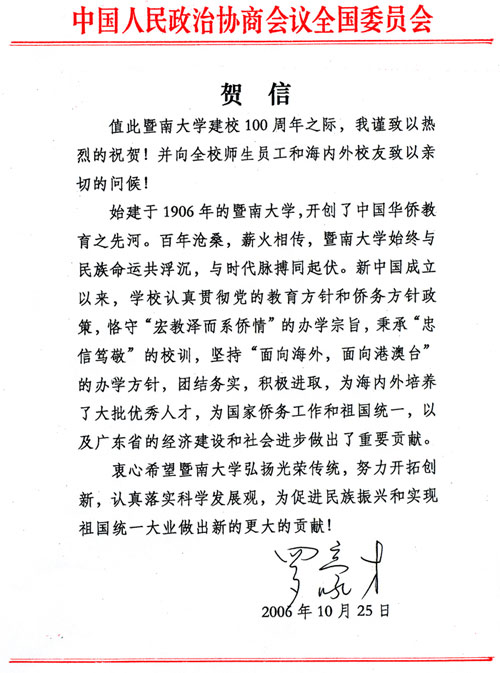 中国人民政治协商会议全国委员会
贺 信
值此暨南大学建校100周年之际，我谨致以热
烈的祝贺！并向全校师生员工和海内外校友致以亲
切的问候！
始建于1906年的暨南大学，开创了中国华侨教
育之先河。百年沧桑，薪火相传，暨南大学始终与
民族命运共浮沉，与时代脉搏同起伏。新中国成立
以来，学校认真贯彻党的教育方针和侨务方针政
策，恪守“宏教泽而系侨情”的办学宗旨，秉承“忠
信笃敬”的校训，坚持“面向海外，面向港澳台”
的办学方针，团结务实，积极进取，为海内外培养
了大批优秀人才，为国家侨务工作和祖国统一，以
及广东省的经济建设和社会进步做出了重要贡献。
衷心希望暨南大学弘扬光荣传统，努力开拓创
新，认真落实科学发展观，为促进民族振兴和实现
祖国统一大业做出新的更大的贡献！
罗豪才
2006年10月25日